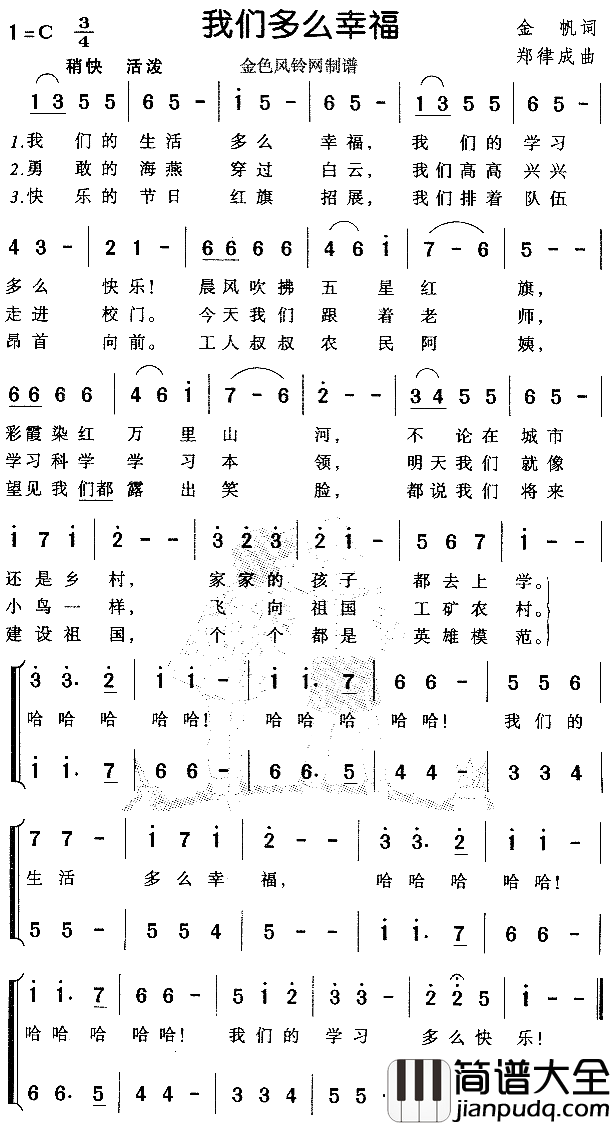 我们多么幸福
1=C 3/4
金 帆词
郑律成曲
稍快 活泼
金色风铃网制谱
1 3 5 5 | 6 5 - | i 5 - | 6 5 - | 1 3 5 5 | 6 5 - |
1.我 们的 生活 多么 幸福， 我 们的 学习
2.勇 敢的 海燕 穿过 白云， 我们高高 兴兴
3.快 乐的 节日 红旗 招展， 我们排着 队伍
4 3 - | 2 1 - | 6 6 6 6 | 4 6 i | 7 - 6 | 5 - - |
多么 快乐！ 晨风吹拂 五星红 旗，
走进 校门。 今天我们 跟着老 师，
昂首 向前。 工人叔叔 农民阿 姨，
6 6 6 6 | 4 6 i | 7 - 6 | 2 - - | 3 4 5 5 | 6 5 - |
彩霞染红 万里山 河， 不 论在 城市
学习科学 学习本 领， 明天我们 就像
望见我们都 露出笑 脸， 都说我们 将来
i 7 i | 2 - - | 3 2 3 | 2 i - | 5 6 7 | i - - |
还是乡 村， 家家的 孩子 都去上 学。
小鸟一 样， 飞向 祖国 工矿农 村。
建设祖 国， 个个 都是 英雄模 范。
3 3. 2 | i i - | i i. 7 | 6 6 - | 5 5 6 |
哈哈 哈 哈哈！ 哈哈 哈 哈哈！ 我们的
i i. 7 | 6 6 - | 6 6. 5 | 4 4 - | 3 3 4 |
7 7 - | i 7 i | 2 - - | 3 3. 2 | i i - |
生活 多么幸 福， 哈哈 哈 哈哈！
5 5 - | 5 5 4 | 5 - - | i i. 7 | 6 6 - |
i i. 7 | 6 6 - | 5 i 2 | 3 3 - | 2 2 5 | i - - |
哈哈 哈 哈哈！ 我们的 学习 多么快 乐！
6 6. 5 | 4 4 - | 3 3 4 | 5 5 -
简谱大全
jianpudq.com